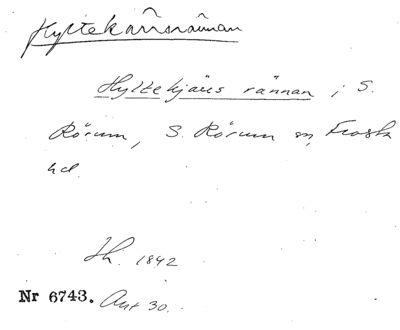 Hyltekärrsrännan
Hyltekjärs rännan i S.
Rörum, S. Rörum sn, Frosta
hd.
Sk. 1842
Nr 6743. Ant 30.